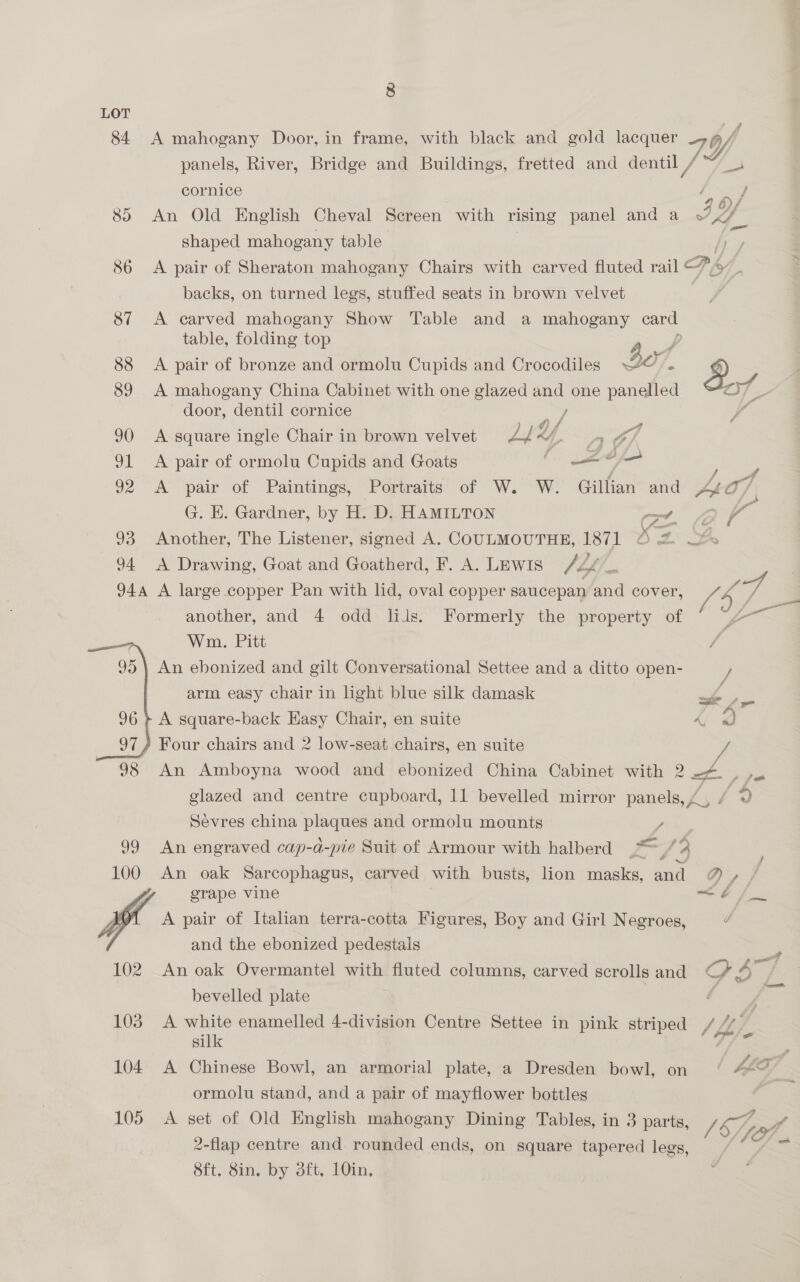 8
LOT
84 A mahogany Door, in frame, with black and gold lacquer
panels, River, Bridge and Buildings, fretted and dentil
cornice
85 An Old English Cheval Screen with rising panel and a
shaped mahogany table
86 A pair of Sheraton mahogany Chairs with carved fluted rail
backs, on turned legs, stuffed seats in brown velvet
87 A carved mahogany Show Table and a mahogany card
table, folding top
88 A pair of bronze and ormolu Cupids and Crocodiles
89 A mahogany China Cabinet with one glazed and one panelled
door, dentil cornice
90 A square ingle Chair in brown velvet
91 A pair of ormolu Cupids and Goats
92 A pair of Paintings, Portraits of W. W. Gillian and
G. E. Gardner, by H. D. HAMILTON
93 Another, The Listener, signed A. COULMOUTHE, 1871
94 A Drawing, Goat and Goatherd, F. A. LEWIS
94A A large copper Pan with lid, oval copper saucepan and cover,
another, and 4 odd lids. Formerly the property of
Wm. Pitt
95 An ebonized and gilt Conversational Settee and a ditto open-
arm easy chair in light blue silk damask
96 A square-back Easy Chair, en suite
97 Four chairs and 2 low-seat chairs, en suite
98 An Amboyna wood and ebonized China Cabinet with 2
glazed and centre cupboard, 11 bevelled mirror panels,
Sèvres china plaques and ormolu mounts
99 An engraved cap-à-pie Suit of Armour with halberd
100 An oak Sarcophagus, carved with busts, lion masks, and
grape vine
A pair of Italian terra-cotta Figures, Boy and Girl Negroes,
and the ebonized pedestals
102 An oak Overmantel with fluted columns, carved scrolls and
bevelled plate
103 A white enamelled 4-division Centre Settee in pink striped
silk
104 A Chinese Bowl, an armorial plate, a Dresden bowl, on
ormolu stand, and a pair of mayflower bottles
105 A set of Old English mahogany Dining Tables, in 3 parts,
2-flap centre and rounded ends, on square tapered legs,
8ft. 8in. by 3ft. 10in.